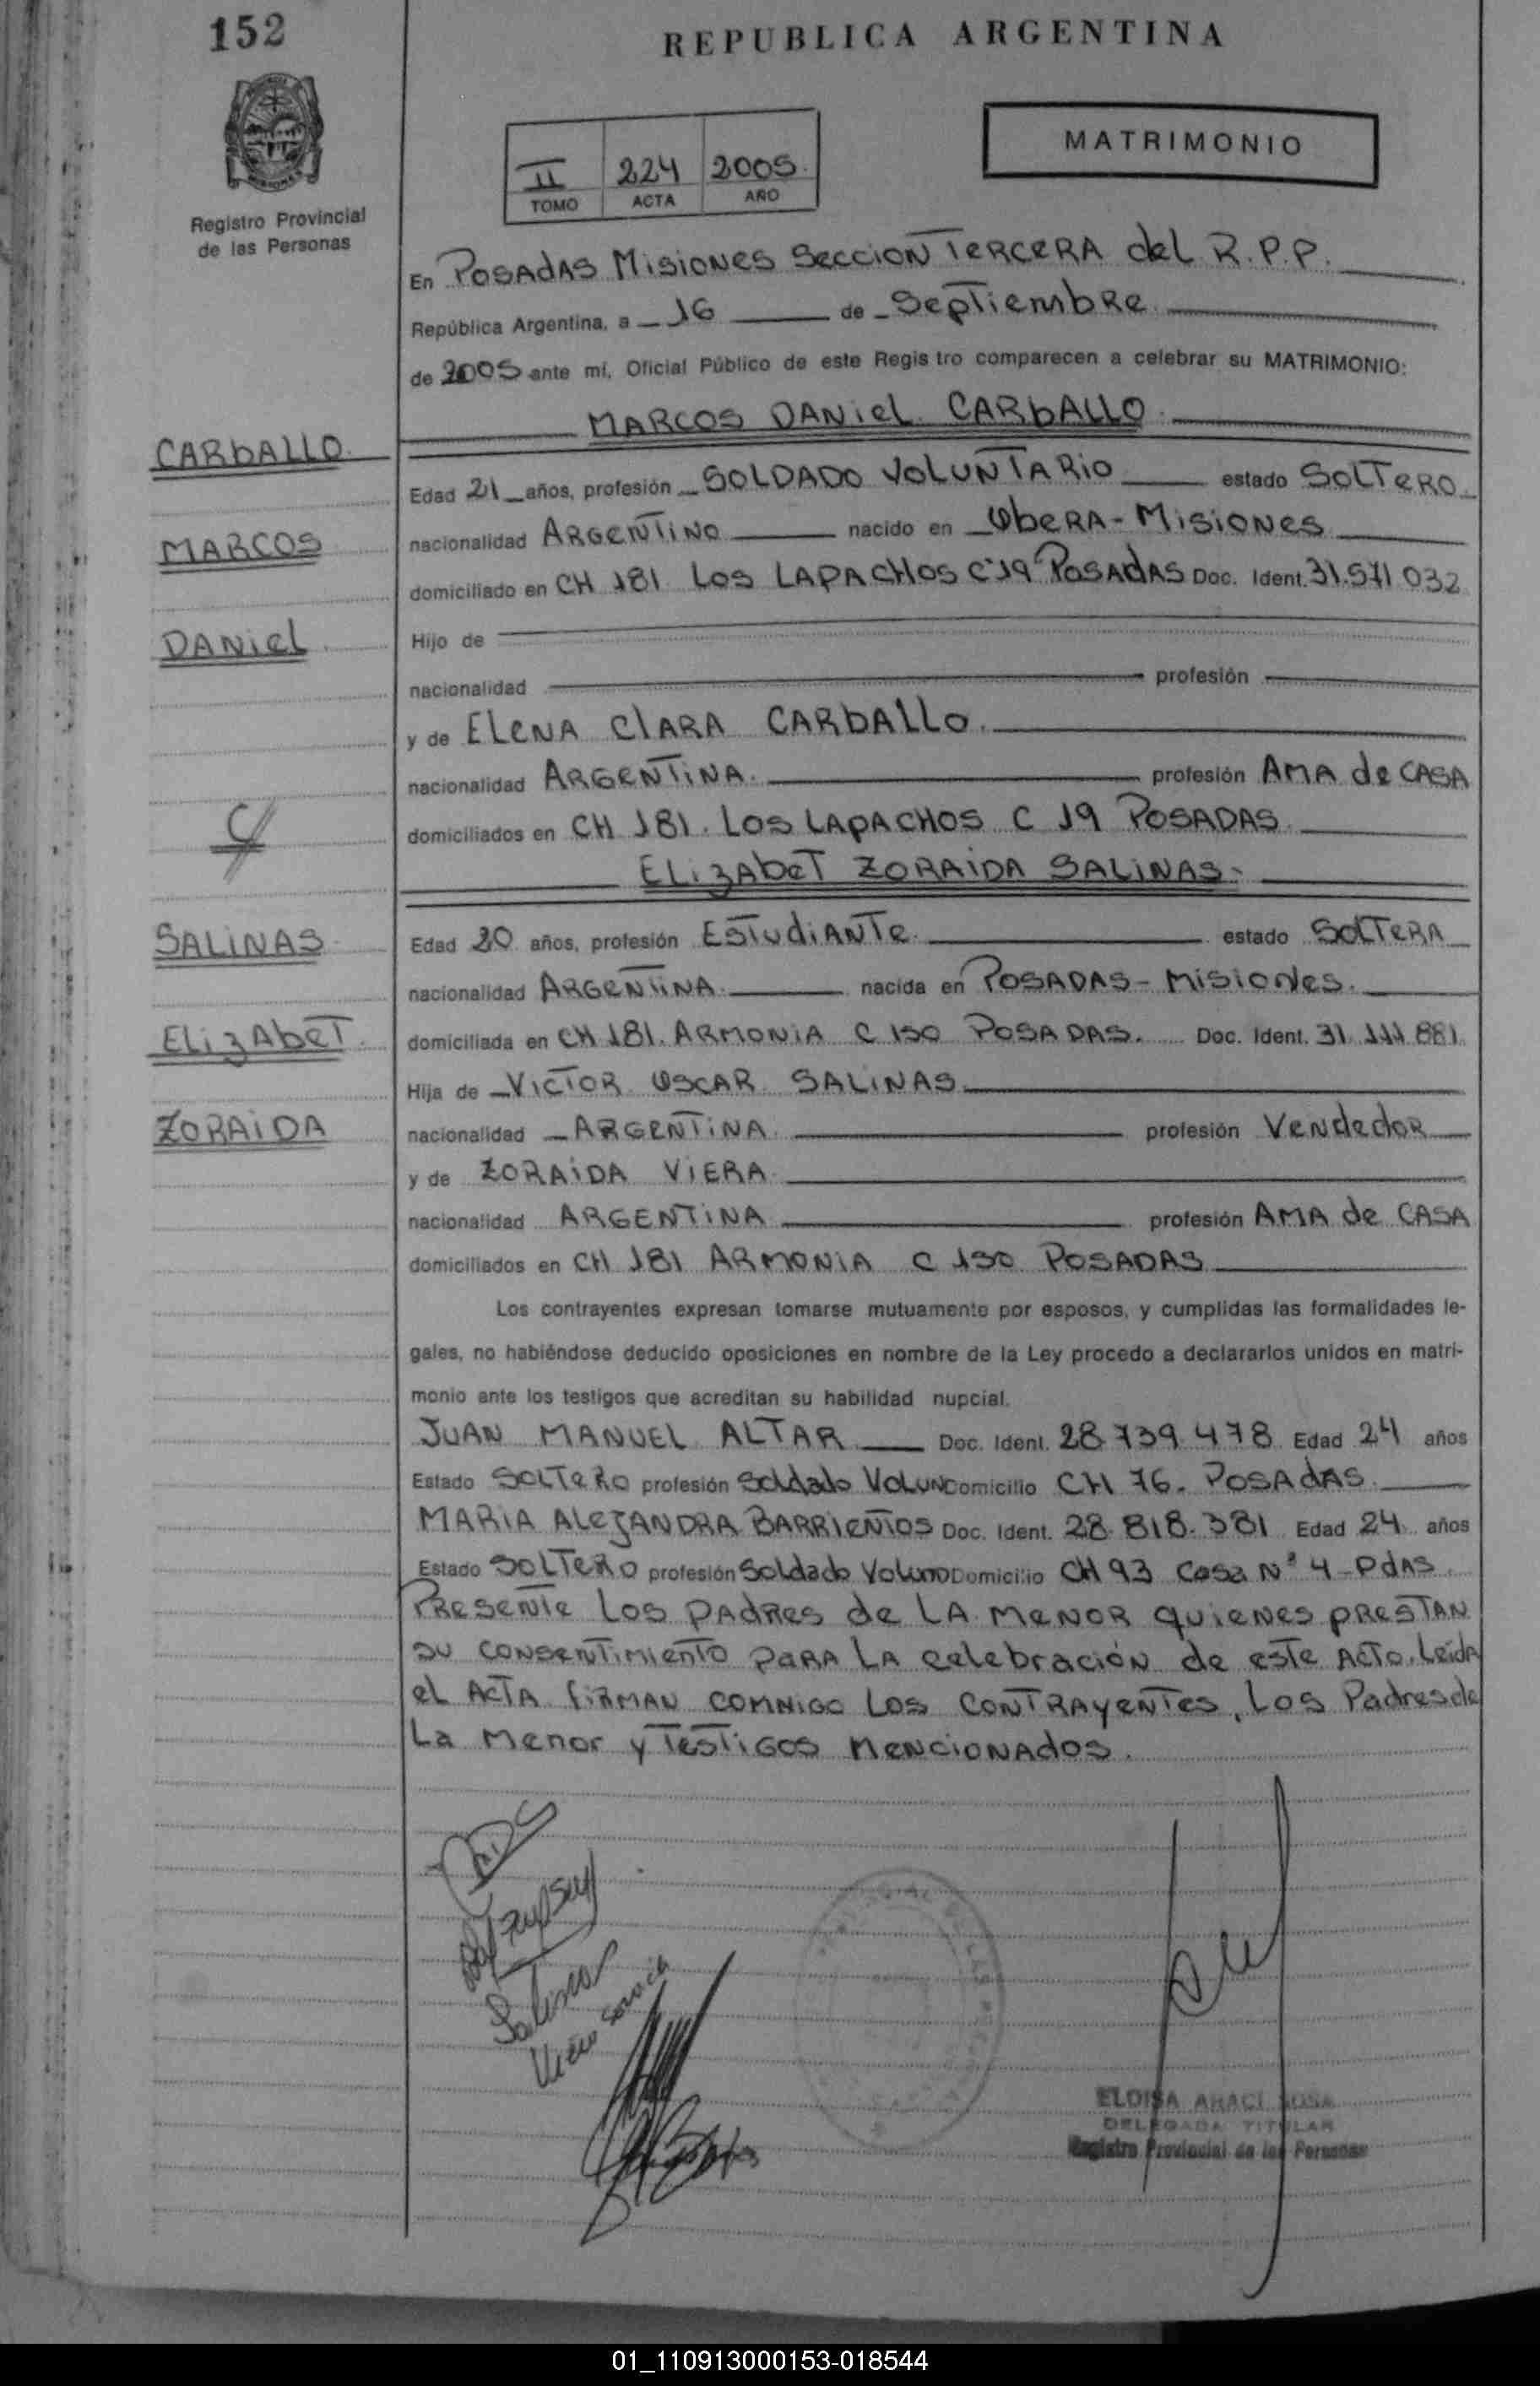 152
REPUBLICA ARGENTINA
MATRIMONIO
II 224 2005
TOMO ACTA AÑO
Registro Provincial
de las Personas
En POSADAS MISIONES SECCION TERCERA del R.P.P.
República Argentina, a 16 de Septiembre
de 2005 ante mí, Oficial Público de este Registro comparecen a celebrar su MATRIMONIO:
MARCOS DANIEL CARBALLO
CARBALLO
Edad 21 años, profesión SOLDADO VOLUNTARIO estado SOLTERO
MARCOS
nacionalidad ARGENTINO nacido en OBERA - MISIONES
domiciliado en CH 181 LOS LAPACHOS C 19 POSADAS Doc. Ident. 31.571 032
DANIEL
Hijo de
nacionalidad profesión
y de ELENA CLARA CARBALLO
nacionalidad ARGENTINA profesión AMA de CASA
domiciliados en CH 181. LOS LAPACHOS C 19 POSADAS
ELIZABET ZORAIDA SALINAS
SALINAS
Edad 20 años, profesión ESTUDIANTE estado SOLTERA
nacionalidad ARGENTINA nacida en POSADAS - MISIONES.
ELIZABET
domiciliada en CH 181. ARMONIA C 150 POSADAS. Doc. Ident. 31 111 881
Hija de VICTOR OSCAR SALINAS
ZORAIDA
nacionalidad ARGENTINA profesión Vendedor
y de ZORAIDA VIERA
nacionalidad ARGENTINA profesión AMA de CASA
domiciliados en CH 181 ARMONIA C 150 POSADAS
Los contrayentes expresan tomarse mutuamente por esposos, y cumplidas las formalidades le-
gales, no habiéndose deducido oposiciones en nombre de la Ley procedo a declararlos unidos en matri-
monio ante los testigos que acreditan su habilidad nupcial.
JUAN MANUEL ALTAR Doc. Ident. 28.739.478 Edad 24 años
Estado SOLTERO profesión Soldado VOLUN Domicilio CH 76. POSADAS.
MARIA ALEJANDRA BARRIENTOS Doc. Ident. 28.818.381 Edad 24 años
Estado SOLTERO profesión Soldado Volun Domicilio CH 93 Casa Nº 4 - PdAS
PRESENTE LOS PADRES de LA MENOR QUIENES PRESTAN
SU CONSENTIMIENTO PARA LA celebración de este ACTO. Leída
el ACTA FIRMAN COMNIGO LOS CONTRAYENTES, LOS Padres de
La Menor y TESTIGOS MENCIONADOS.
Salinas
ELOISA ARACI SOSA
DELEGADA TITULAR
Registro Provincial de las Personas
01_110913000153-018544